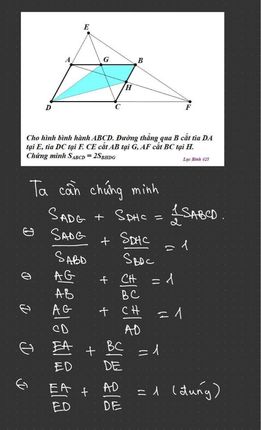 E
A
G
B
H
D
C
F
Cho hình bình hành ABCD. Đường thẳng qua B cắt tia DA
tại E, tia DC tại F. CE cắt AB tại G, AF cắt BC tại H.
Chứng minh S_ABCD = 2S_BHDG
Lạc Bình 425
Ta cần chứng minh
S_ADG + S_DHC = 1/2 S_ABCD.
⇔ S_ADG/S_ABD + S_DHC/S_BDC = 1
⇔ AG/AB + CH/BC = 1
⇔ AG/CD + CH/AD = 1
⇔ EA/ED + BC/DE = 1
⇔ EA/ED + AD/DE = 1 (đúng)